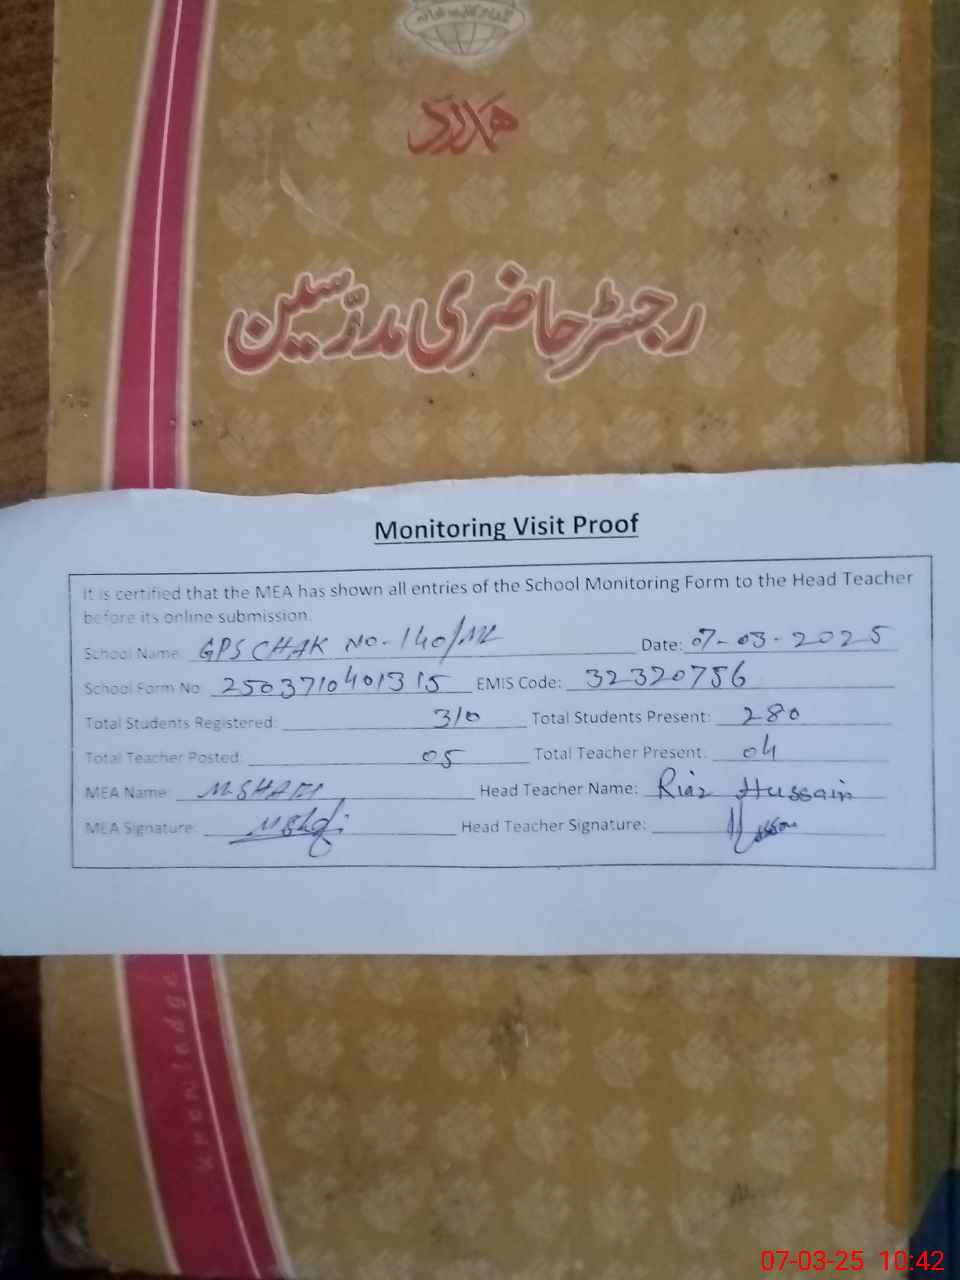 ہمدرد
رجسٹر حاضری مدرّسین
Monitoring Visit Proof
It is certified that the MEA has shown all entries of the School Monitoring Form to the Head Teacher
before its online submission.
School Name: GPS CHAK NO-140/ML Date: 07-03-2025
School Form No: 2503710401315 EMIS Code: 32320756
Total Students Registered: 310 Total Students Present: 280
Total Teacher Posted: 05 Total Teacher Present: 04
MEA Name: M-SHAFI Head Teacher Name: Riaz Hussain
MEA Signature: MShafi Head Teacher Signature:
Knowledge
07-03-25 10:42